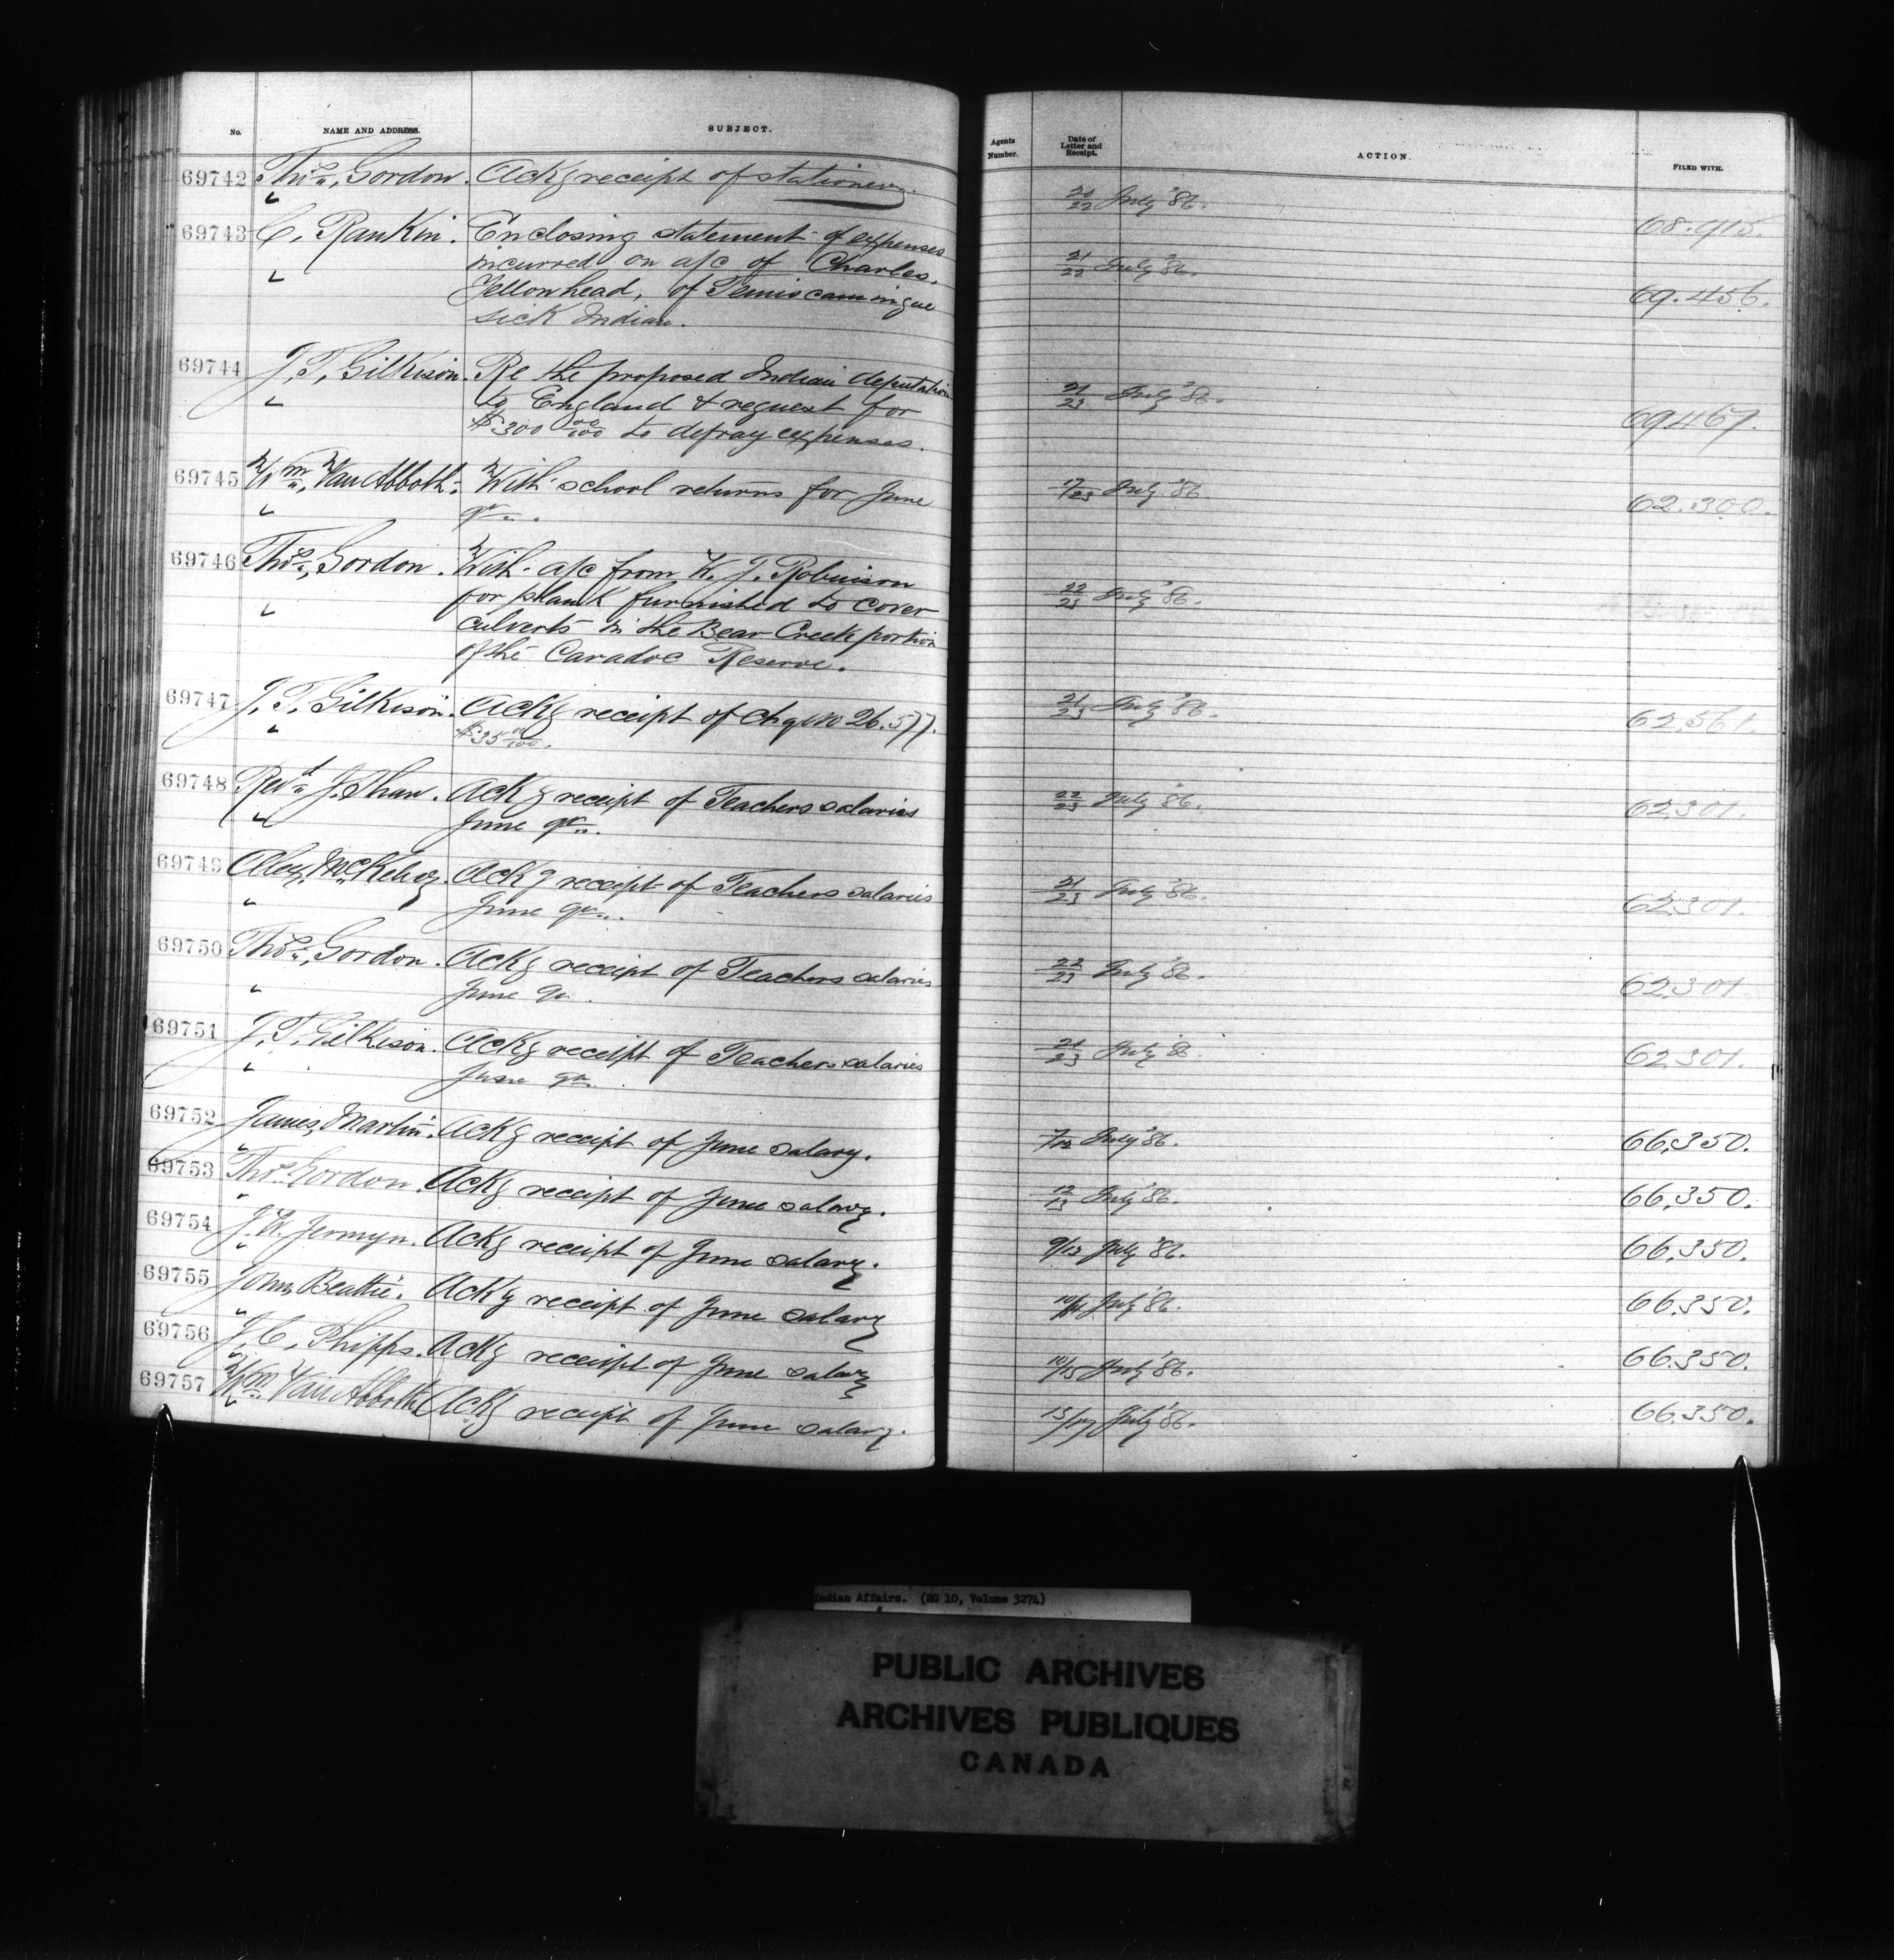 No. NAME AND ADDRESS. SUBJECT. Agents Number. Date of Letter and Receipt. ACTION. FILED WITH.
69742 Thos, Gordon. Ackg receipt of stationery. 20/22 July '86. 68.915.
69743 C, Rankin. Enclosing statement of expenses
incurred on a/c of Charles. 21/22 July '86.
Yellowhead, of Temiscamingue 69.456.
sick Indian.
69744 J, T, Gilkison. Re the proposed Indian deputation
to England & request for 21/23 July '86. 69467.
$300 00/100 to defray expenses.
69745 Wm, Van Abboth. With school returns for June 17/23 July '86. 62.300.
qr.
69746 Thos, Gordon. With a/c from W. J. Robinson
for plank furnished to cover 22/23 July '86.
culverts in the Bear Creek portion
of the Caradoc Reserve.
69747 J, T, Gilkison. Ackg receipt of Chq no 26.577. 21/23 July '86. 62.561.
$35 00/100.
69748 Revd J. Shaw. Ackg receipt of Teachers salaries 22/23 July '86. 62301.
June qr.
69749 Alex. McKelvey. Ackg receipt of Teachers salaries 21/23 July '86. 62301.
June qr.
69750 Thos, Gordon. Ackg receipt of Teachers salaries 22/23 July '86. 62,301
June qr.
69751 J, T, Gilkison. Ackg receipt of Teachers salaries 21/23 July '86. 62301.
June qr.
69752 James, Martin. Ackg receipt of June salary. 7/12 July '86. 66,350.
69753 Thos Gordon. Ackg receipt of June salary. 12/13 July '86. 66,350.
69754 J. W. Jermyn. Ackg receipt of June salary. 9/13 July '86. 66,350.
69755 John, Beattie. Ackg receipt of June salary 10/14 July '86. 66.350.
69756 J, C, Phipps. Ackg receipt of June salary 10/15 July '86. 66.350.
69757 Wm Van Abboth Ackg receipt of June salary. 15/17 July '86. 66.350.
Indian Affairs. (RG 10, Volume 3274)
PUBLIC ARCHIVES
ARCHIVES PUBLIQUES
CANADA